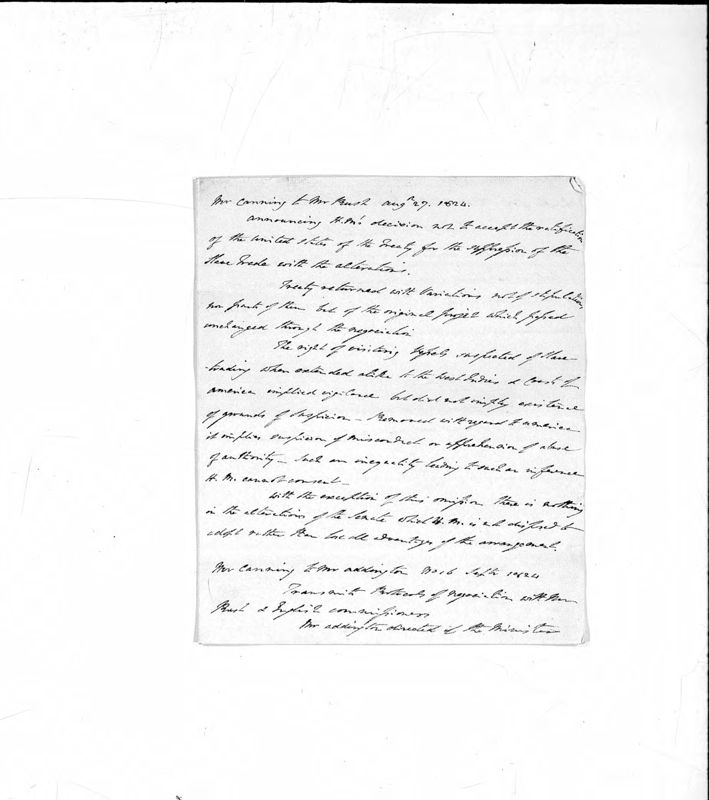 Mr Canning to Mr Rush Augt 27. 1824.
announcing H.M's decision not to accept the ratification
of the United States of the Treaty for the suppression of the
Slave Trade with the alterations.
Treaty returned with Variations not of stipulations
nor parts of them but of the original project which passed
unchanged through the negociation
The right of visiting Vessels suspected of Slave
trading when extended alike to the West Indies & Coast of
America implied vigilance but did not imply existence
of grounds of suspicion - Removed with regard to America
it implies suspicion of misconduct or apprehension of abuse
of authority - Such an inequality leading to such an inference
H. M. cannot consent -
With the exception of this omission there is nothing
in the alterations of the Senate which H. M. is not disposed to
adopt rather than lose all advantages of the arrangement.
Mr Canning to Mr Addington No 16 Septr 1824
Transmits Protocols of negociation with Mr
Rush & English Commissioners
Mr Addington directed if the Minister